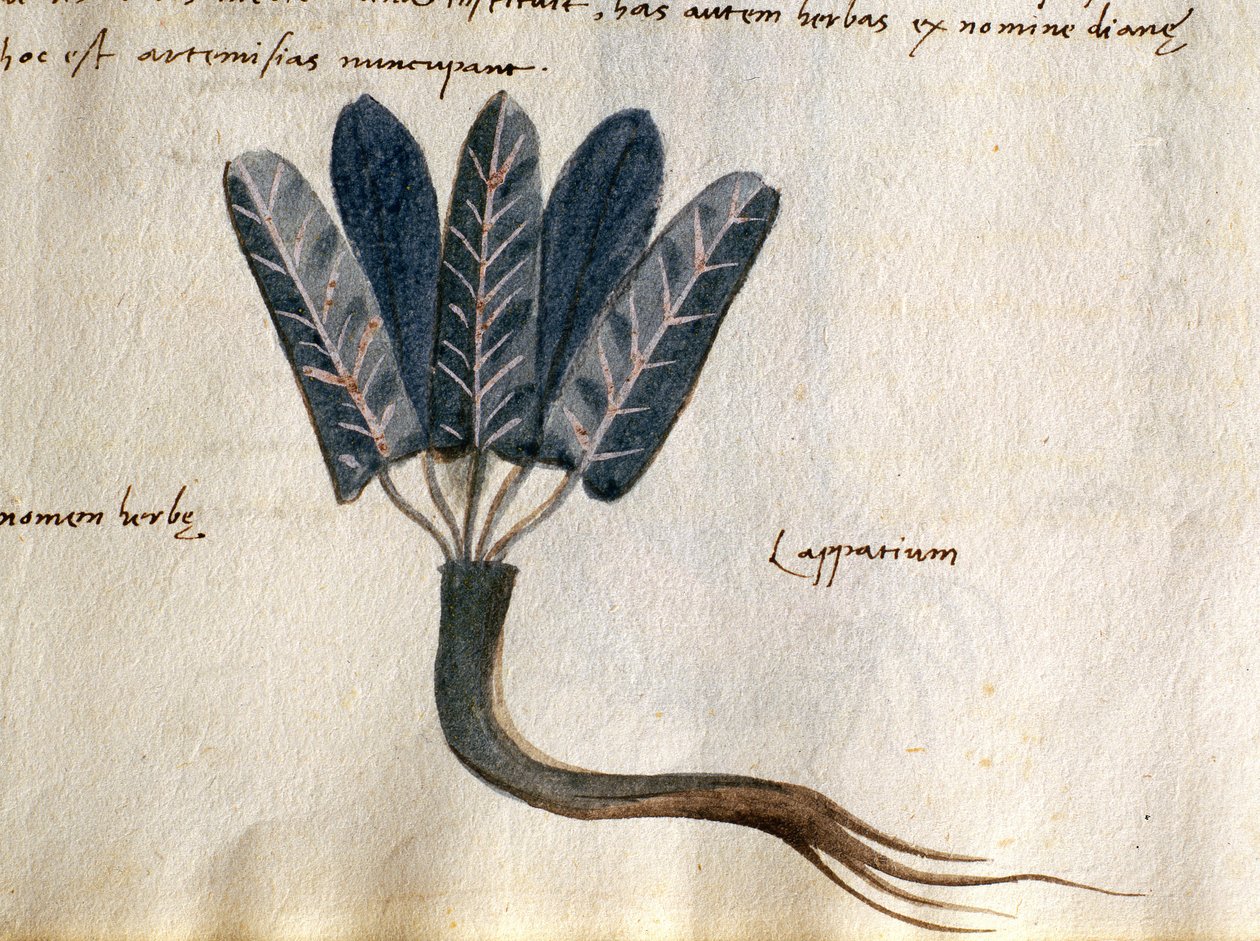 instituit, has autem herbas ex nomine dianę
hoc est artemisias nuncupant.
nomen herbę
Lappatium